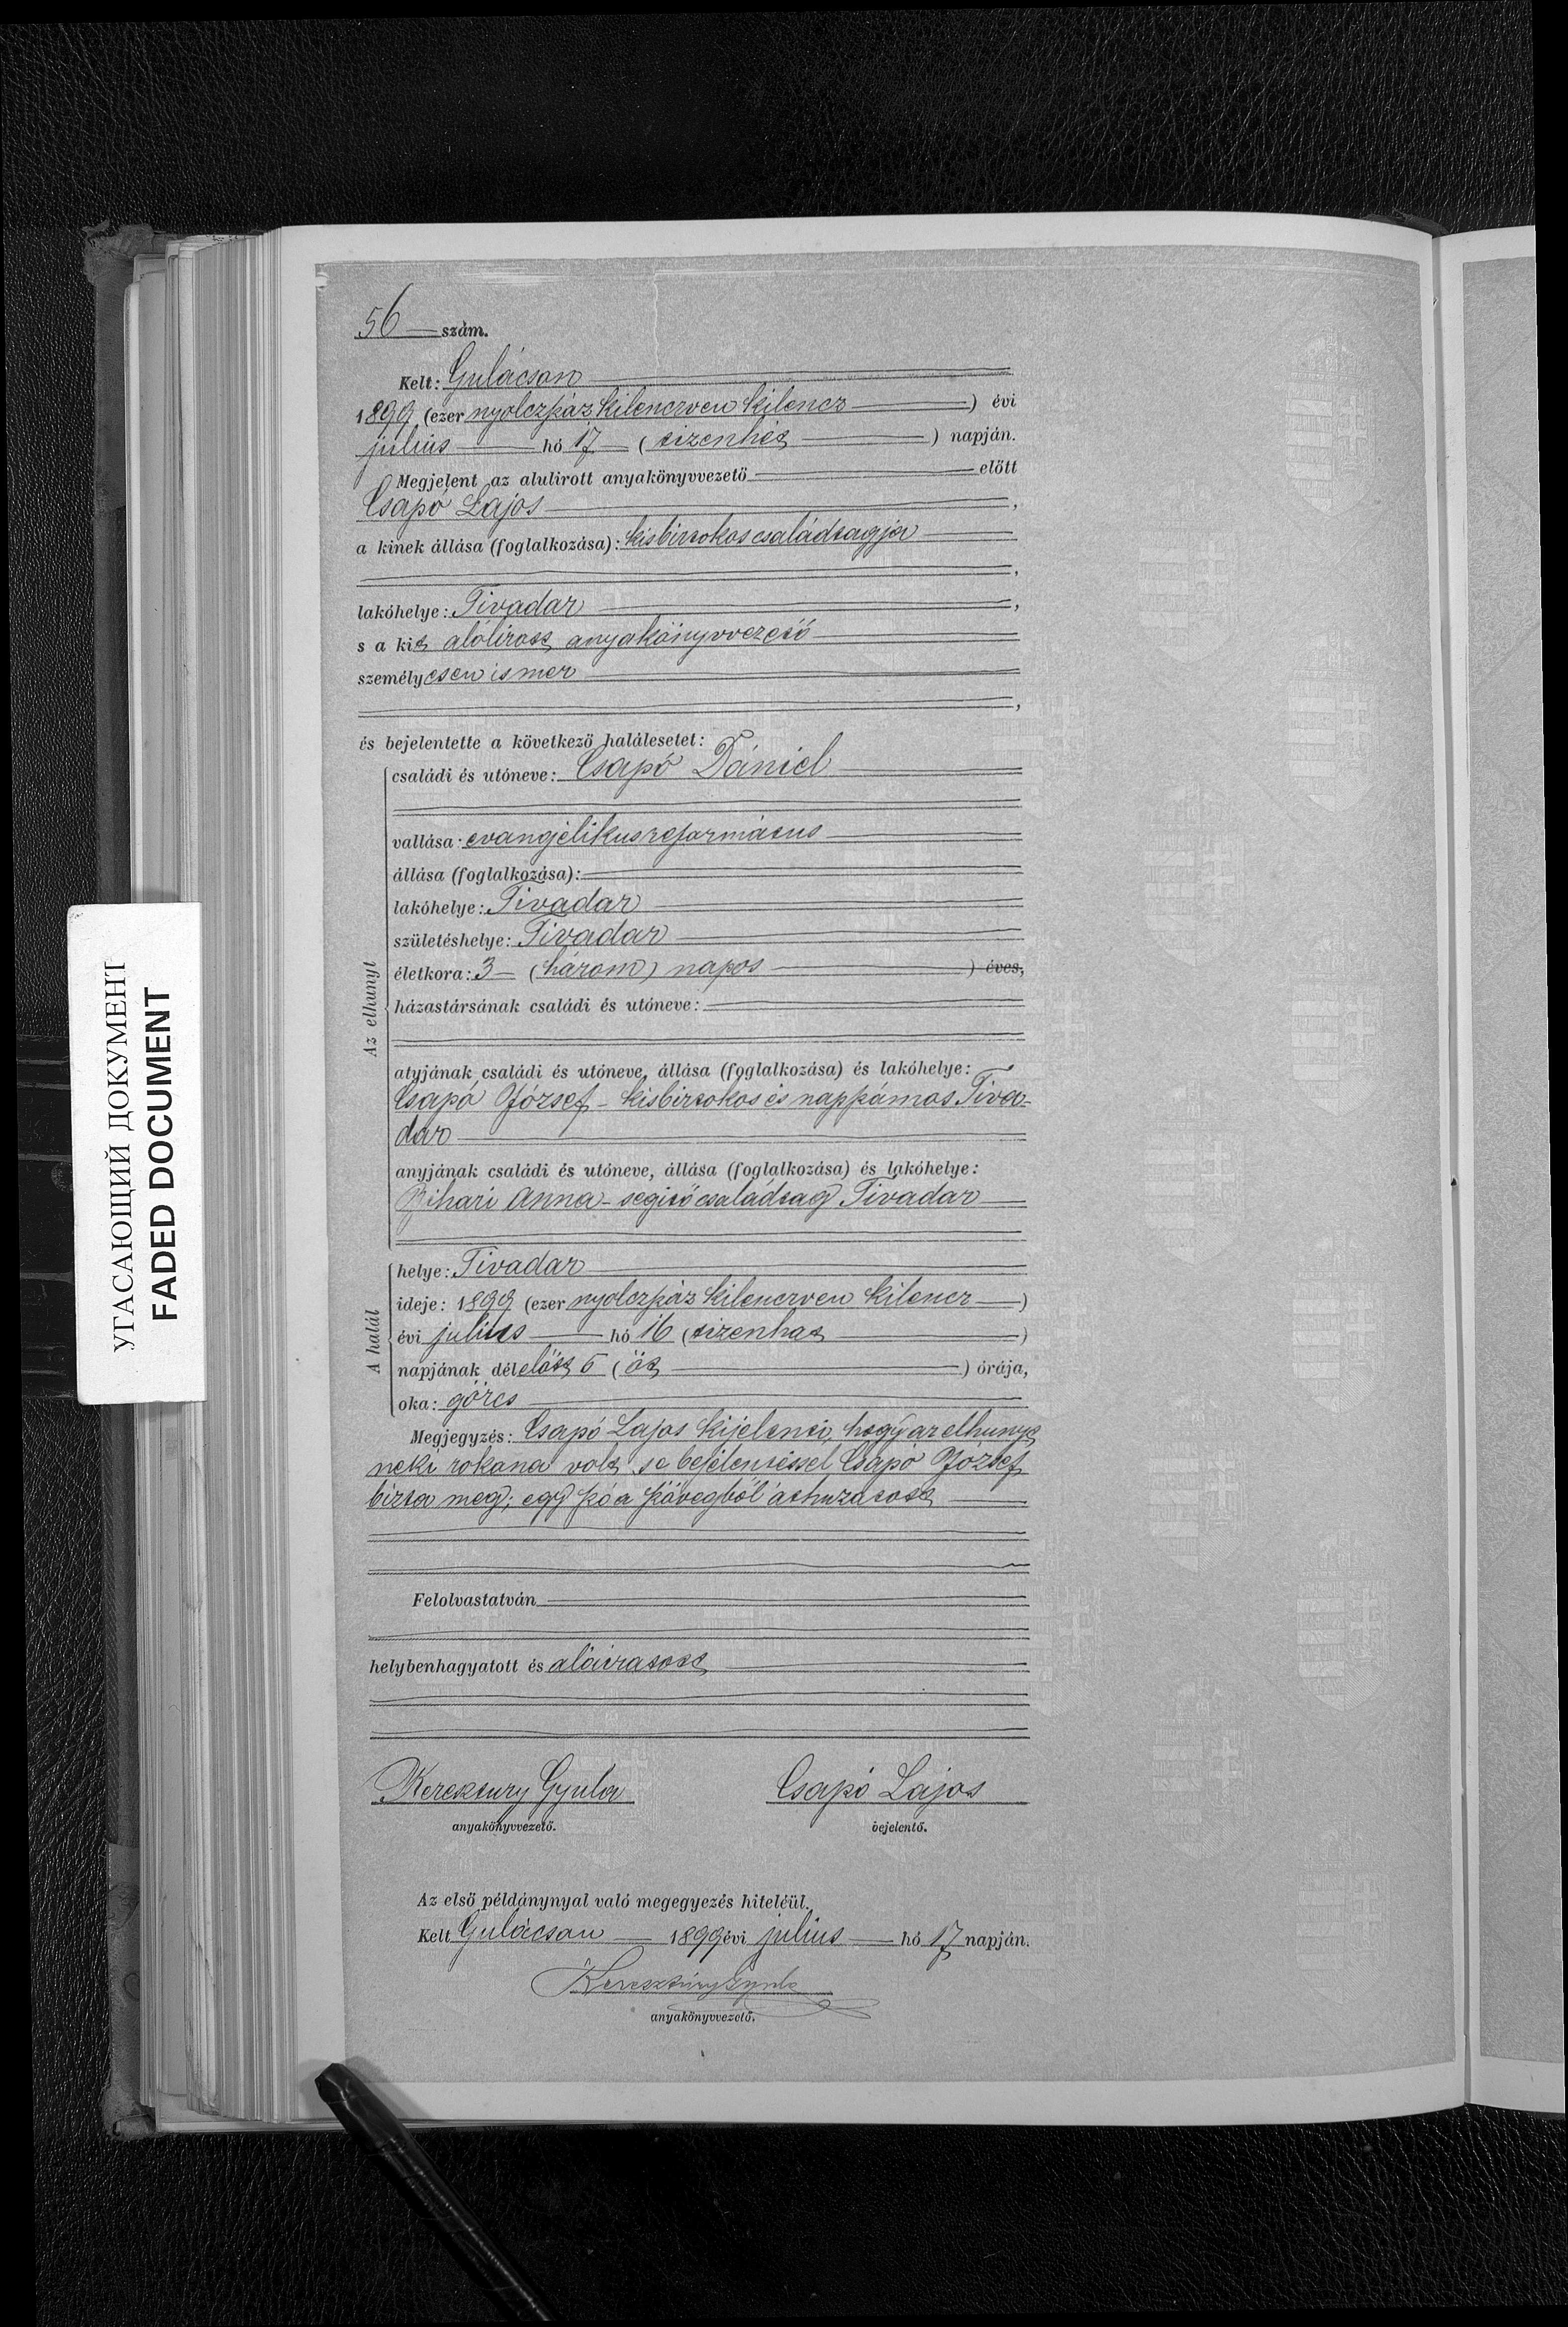 56 szám.
Kelt: Gulácson
1899 (ezer nyolczszáz kilenczven kilencz) évi
julius hó 17 (tizenhét) napján.
Megjelent az alulirott anyakönyvvezető előtt
Csapó Lajos,
a kinek állása (foglalkozása): kisbirtokos családtagja
,
lakóhelye: Tivadar,
s a kit alólirott anyakönyvvezető
személyesen ismer
,
és bejelentette a következő halálesetet:
Az elhunyt
családi és utóneve: Csapó Dániel
vallása: evangélikus református
állása (foglalkozása):
lakóhelye: Tivadar
születéshelye: Tivadar
életkora: 3 (három) napos ) éves,
házastársának családi és utóneve:
atyjának családi és utóneve, állása (foglalkozása) és lakóhelye:
Csapó József - kisbirtokos és napszámos Tiva-
dar
anyjának családi és utóneve, állása (foglalkozása) és lakóhelye:
Bihari Anna - segitő családtag Tivadar
A halál
helye: Tivadar
ideje: 1899 (ezer nyolczszáz kilenczven kilencz)
évi julius hó 16 (tizenhat)
napjának délelőtt 5 (öt) órája,
oka: görcs
Megjegyzés: Csapó Lajos kijelenti, hogy az elhunyt
neki rokona volt, s e bejelentéssel Csapó József
bizta meg; egy szó a szövegből áthuzatott
Felolvastatván
helybenhagyatott és aláiratott
Keresztury Gyula Csapó Lajos
anyakönyvvezető. bejelentő.
Az első példánynyal való megegyezés hiteléül.
Kelt Gulácson 1899 évi julius hó 17 napján.
Keresztúry Gyula
anyakönyvvezető.
УГАСАЮЩИЙ ДОКУМЕНТ
FADED DOCUMENT